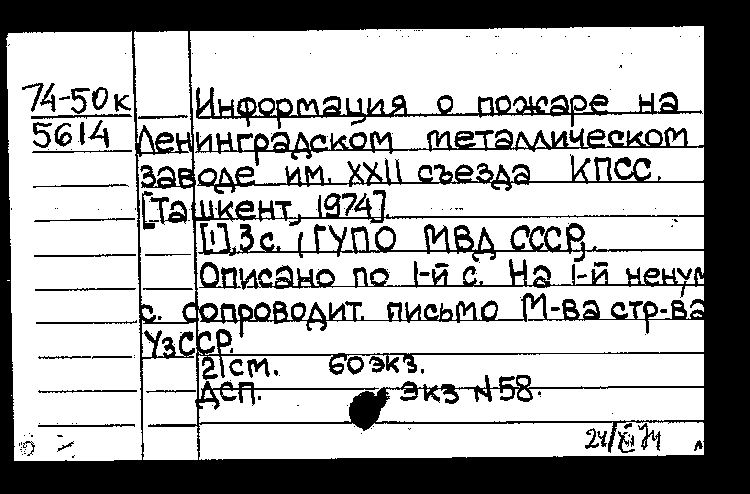 74-50к Информация о пожаре на
5614 Ленинградском металлическом
заводе им. XXII съезда КПСС.
[Ташкент, 1974]
[1], 3 с. (ГУПО МВД СССР).
Описано по 1-й с. На 1-й ненум
с. сопроводит. письмо М-ва стр-ва
УзССР.
21 см. 60 экз.
ДСП. Экз N 58.
24/XII 74